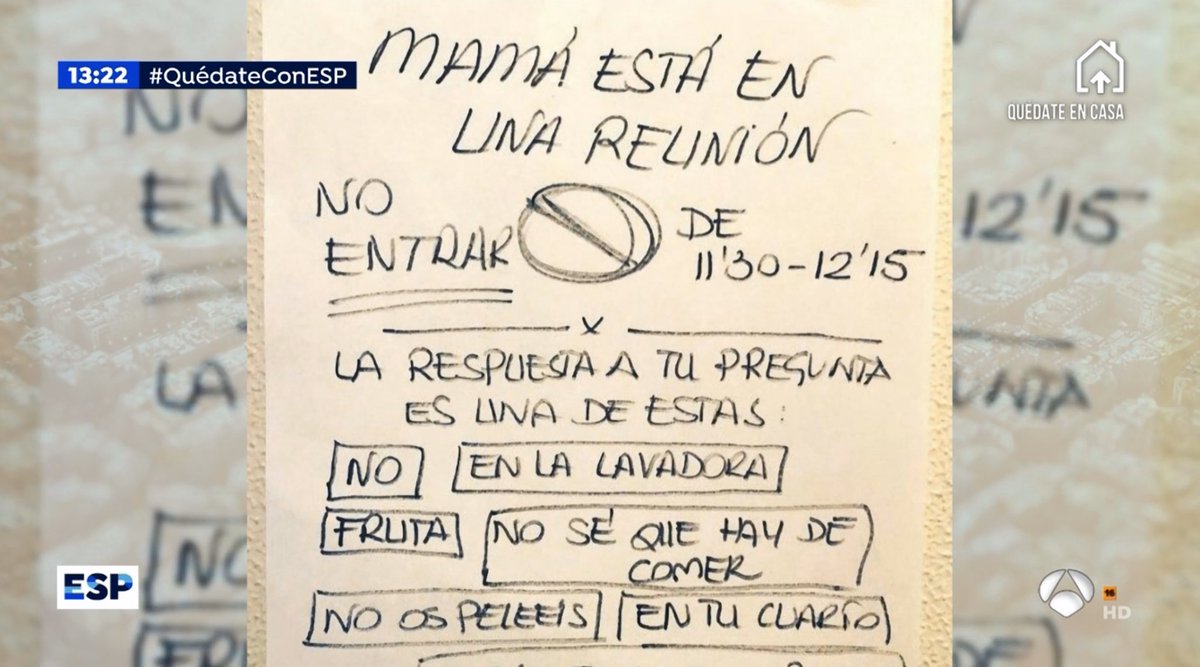 13:22 #QuédateConESP
QUEDATE EN CASA
MAMÁ ESTÁ EN
UNA REUNIÓN
NO
ENTRAR
DE
11'30-12'15
x
LA RESPUESTA A TU PREGUNTA
ES UNA DE ESTAS:
NO
EN LA LAVADORA
FRUTA
NO SÉ QUE HAY DE
COMER
NO OS PELEEIS
EN TU CUARTO
ESP
16
HD
NO
EN
LA
NO
FRU
12'15
UNTA